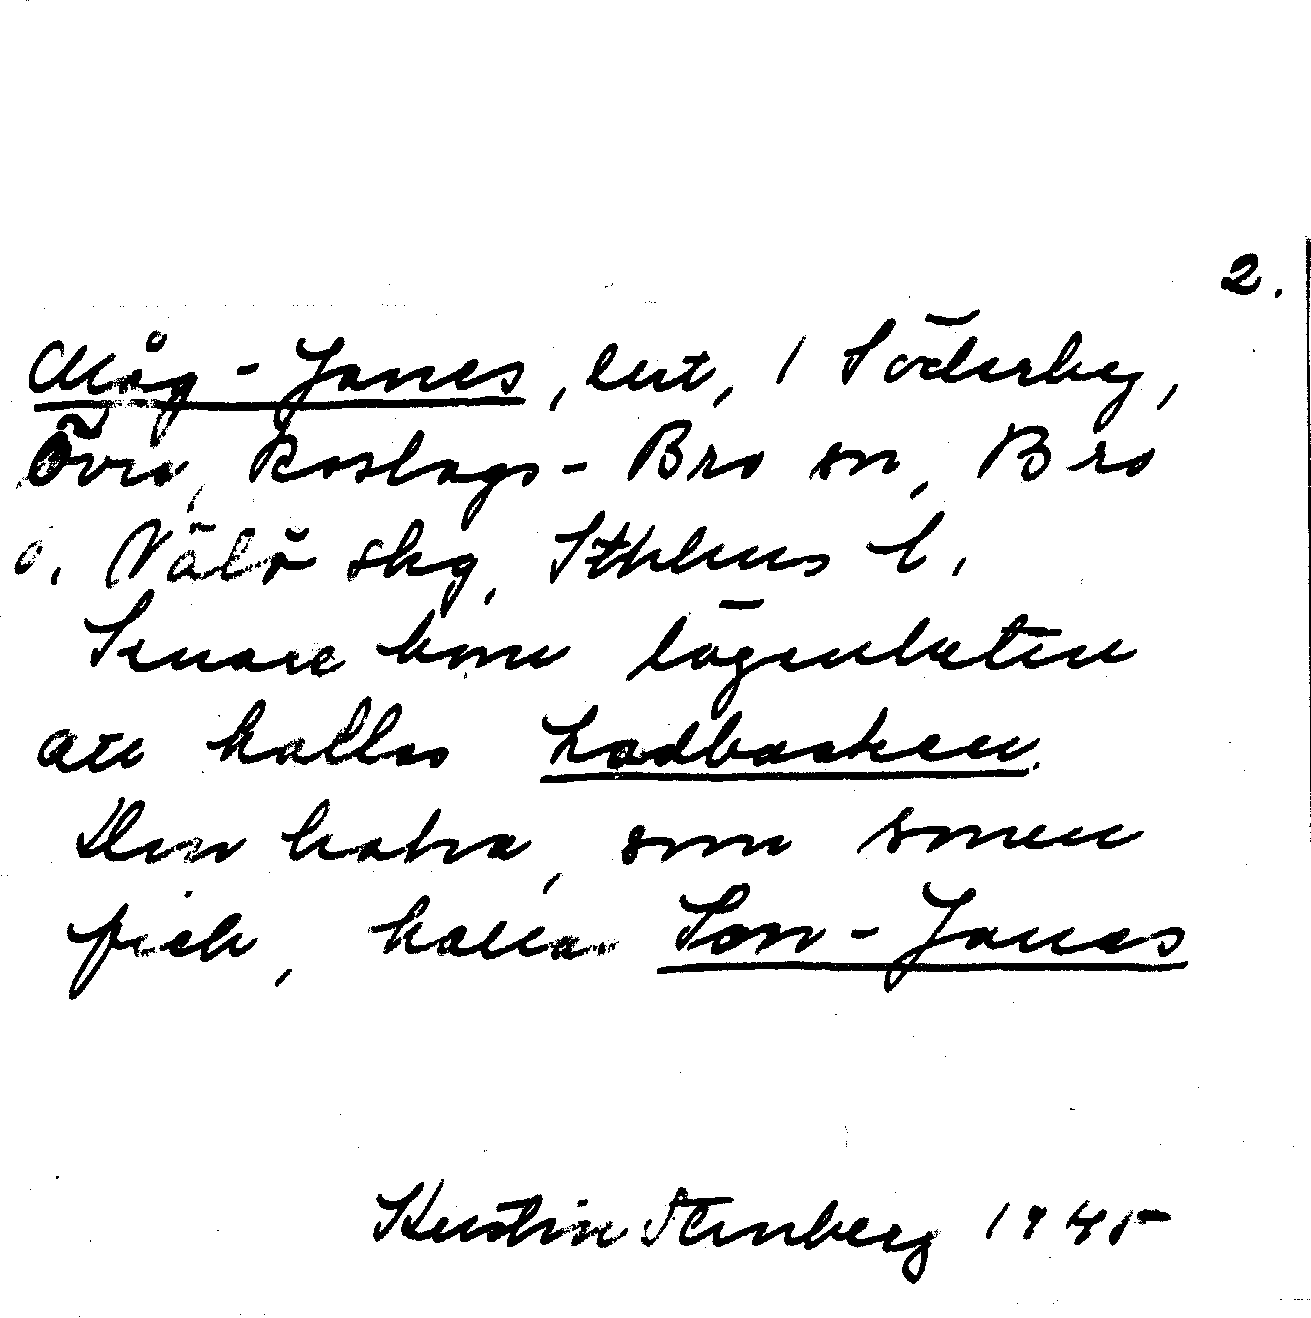 2.
Måg-Janes, lht, i Söderby,
Övre, Roslags-Bro sn, Bro
o. Vätö skg, Sthlms l.
Senare kom lägenheten
att kallas Ladbacken.
Den halva, som sonen
fick, kallas Son-Janas
Kerstin Stenberg 1945